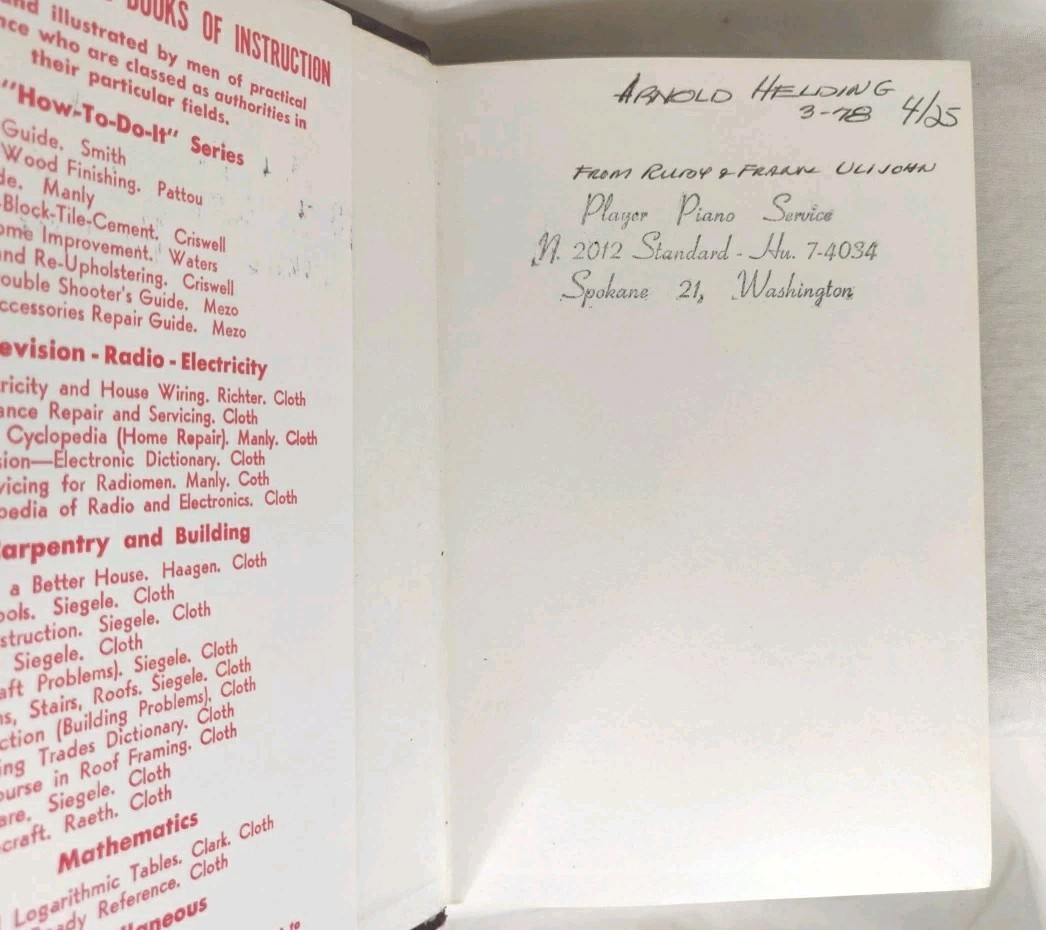 BOOKS OF INSTRUCTION
and illustrated by men of practical
nce who are classed as authorities in
their particular fields.
"How-To-Do-It" Series
Guide. Smith
Wood Finishing. Pattou
de. Manly
-Block-Tile-Cement. Criswell
ome Improvement. Waters
and Re-Upholstering. Criswell
ouble Shooter's Guide. Mezo
ccessories Repair Guide. Mezo
evision - Radio - Electricity
ricity and House Wiring. Richter. Cloth
ance Repair and Servicing. Cloth
Cyclopedia (Home Repair). Manly. Cloth
sion—Electronic Dictionary. Cloth
vicing for Radiomen. Manly. Coth
pedia of Radio and Electronics. Cloth
Carpentry and Building
a Better House. Haagen. Cloth
ools. Siegele. Cloth
struction. Siegele. Cloth
Siegele. Cloth
aft Problems). Siegele. Cloth
ns, Stairs, Roofs. Siegele. Cloth
ction (Building Problems). Cloth
ing Trades Dictionary. Cloth
ourse in Roof Framing. Cloth
are. Siegele. Cloth
craft. Raeth. Cloth
Mathematics
Logarithmic Tables. Clark. Cloth
eady Reference. Cloth
llaneous
to
ARNOLD HELDING
3-78 4/25
FROM RUDY & FRANK ULIJOHN
Player Piano Service
N. 2012 Standard - Hu. 7-4034
Spokane 21, Washington